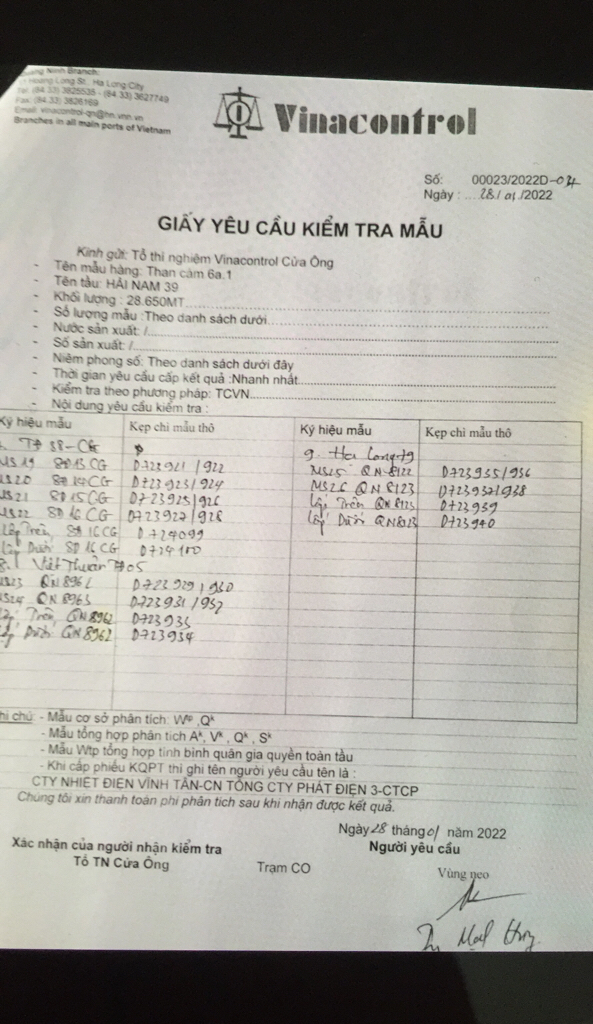 Hoàng Long St., Ha Long City
Tel: (84.33) 3825535 - (84.33) 3627749
Fax: (84.33) 3826169
Email: vinacontrol-qn@hn.vnn.vn
Branches in all main ports of Vietnam
Vinacontrol
Số: 00023/2022D-04
Ngày : 28/01/2022
GIẤY YÊU CẦU KIỂM TRA MẪU
Kính gửi: Tổ thí nghiệm Vinacontrol Cửa Ông
- Tên mẫu hàng: Than cám 6a.1
- Tên tàu: HẢI NAM 39
- Khối lượng : 28.650MT
- Số lượng mẫu :Theo danh sách dưới
- Nước sản xuất: /
- Số sản xuất: /
- Niêm phong số: Theo danh sách dưới đây
- Thời gian yêu cầu cấp kết quả :Nhanh nhất
- Kiểm tra theo phương pháp: TCVN
- Nội dung yêu cầu kiểm tra :
Ký hiệu mẫu Kẹp chì mẫu thô Ký hiệu mẫu Kẹp chì mẫu thô
38-CG 9. Hạ Long 79
MS 19 SĐ 13 CG D723921/922 MS25 QN 8122 D723935/936
MS20 SĐ 14 CG D723923/924 MS26 QN 8123 D723937/938
MS21 SĐ 15 CG D723925/926 Lấy Trên QN 8123 D723939
MS22 SĐ 16 CG D723927/928 Lấy Dưới QN8123 D723940
Lấy Trên SĐ 16 CG D724099
Lấy Dưới SĐ 16 CG D724100
8. Việt Thuận 05
MS23 QN 8962 D723929/930
MS24 QN 8963 D723931/932
Lấy Trên QN 8962 D723933
Lấy Dưới QN 8962 D723934
Ghi chú: - Mẫu cơ sở phân tích: Wtp ,Qk
- Mẫu tổng hợp phân tích Ak, Vk , Qk , Sk
- Mẫu Wtp tổng hợp tính bình quân gia quyền toàn tàu
- Khi cấp phiếu KQPT thì ghi tên người yêu cầu tên là :
CTY NHIỆT ĐIỆN VĨNH TÂN-CN TỔNG CTY PHÁT ĐIỆN 3-CTCP
Chúng tôi xin thanh toán phí phân tích sau khi nhận được kết quả.
Ngày 28 tháng 01 năm 2022
Xác nhận của người nhận kiểm tra Người yêu cầu
Tổ TN Cửa Ông Trạm CO Vùng neo